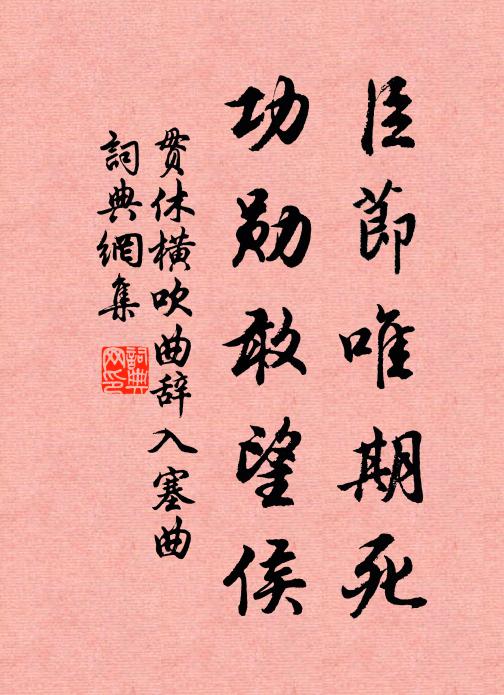 臣節唯期死
功勋敢望侯
贯休橫吹曲辞入塞曲
詞典網集
詞典網印